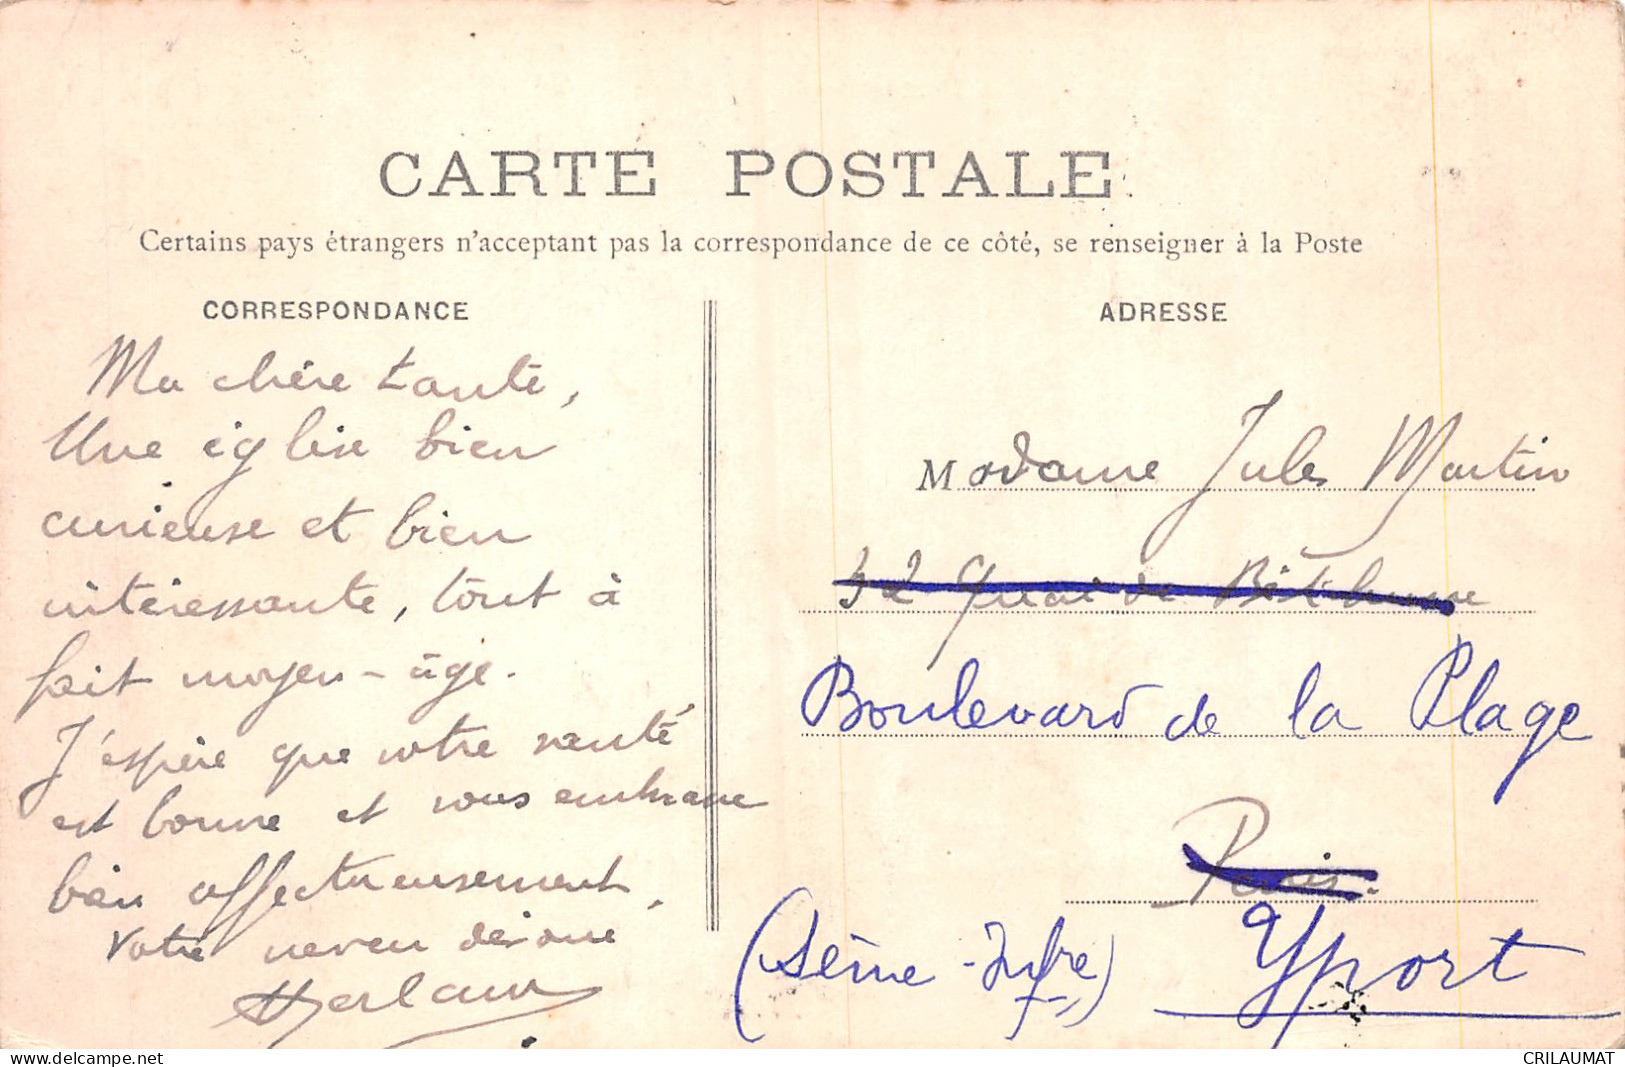 CARTE POSTALE
Certains pays étrangers n'acceptant pas la correspondance de ce côté, se renseigner à la Poste
CORRESPONDANCE
Ma chère tante,
Une église bien
curieuse et bien
intéressante, tout à
fait moyen-âge.
J'espère que votre santé
est bonne et vous embrasse
bien affectueusement,
Votre neveu dévoué
ADRESSE
Madame Jules Martin
32 Quai de Béthune
Boulevard de la Plage
Paris.
(Seine-Infre) Yport
www.delcampe.net
CRILAUMAT